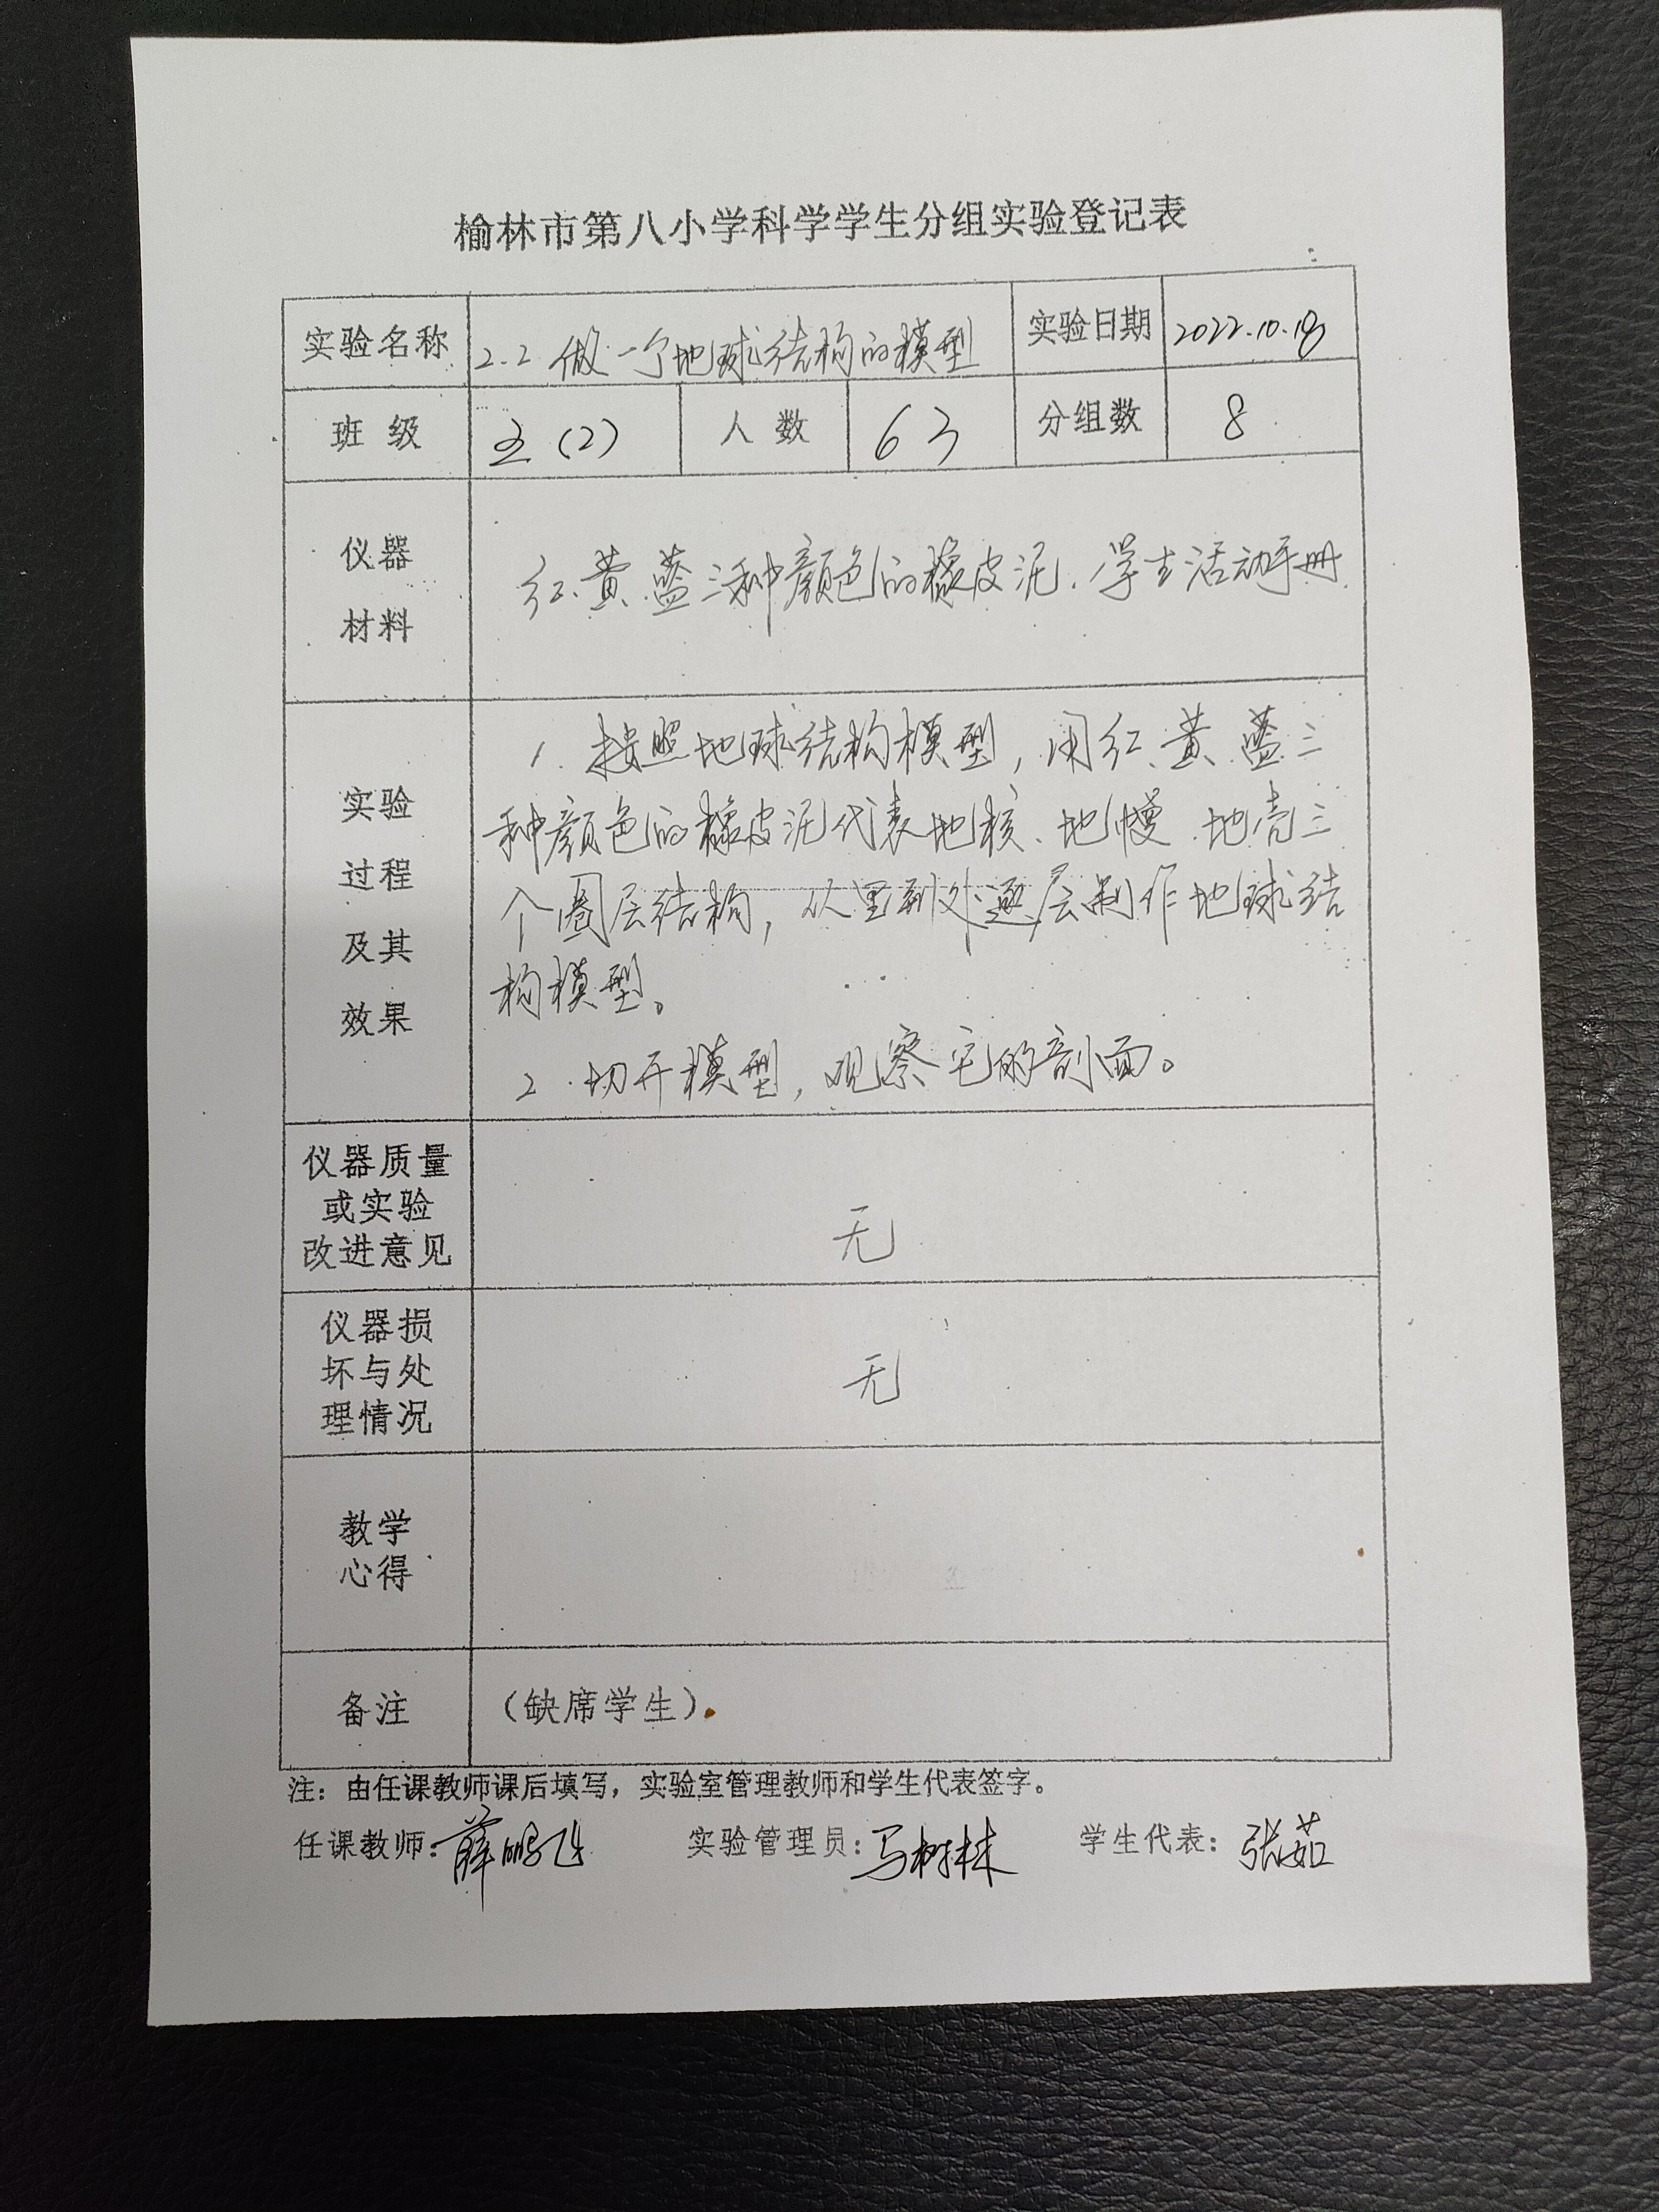 榆林市第八小学科学学生分组实验登记表
实验名称 2.2 做一个地球结构的模型 实验日期 2022.10.18
班 级 五(2) 人 数 63 分组数 8
仪器
材料
红、黄、蓝三种颜色的橡皮泥、学生活动手册
实验
过程
及其
效果
1. 按照地球结构模型,用红、黄、蓝三
种颜色的橡皮泥代表地核、地幔、地壳三
个圈层结构,从里到外逐层制作地球结
构模型。
2. 切开模型,观察它的剖面。
仪器质量
或实验
改进意见
无
仪器损
坏与处
理情况
无
教学
心得
备注 (缺席学生)
注:由任课教师课后填写,实验室管理教师和学生代表签字。
任课教师:薛鹏飞 实验管理员:马树林 学生代表:张茹